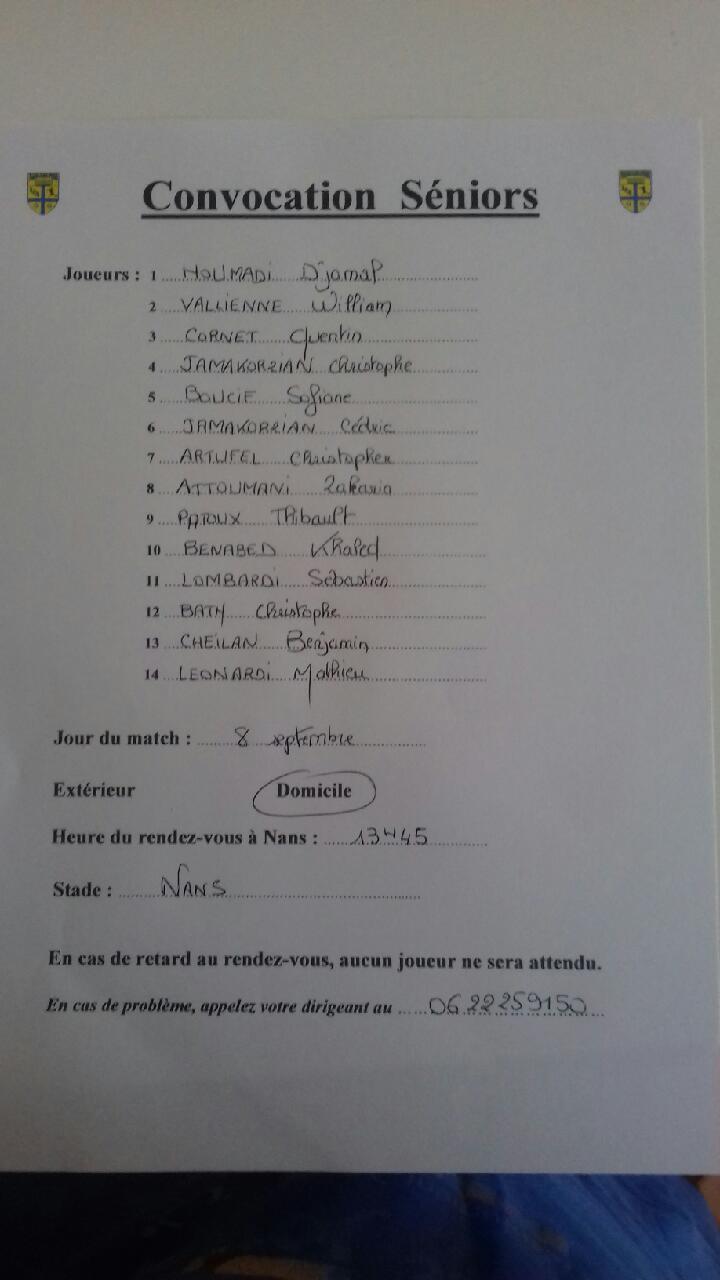 Convocation Séniors
Joueurs : 1 HOUMADI Djamal
2 VALLIENNE William
3 CORNET Quentin
4 JAMAKORZIAN Christophe
5 BOUCIF Sofiane
6 JAMAKORZIAN Cédric
7 ARTUFEL Christopher
8 ATTOUMANI Zakaria
9 PATOUX Thibault
10 BENABED Khaled
11 LOMBARDI Sébastien
12 BATY Christophe
13 CHEILAN Benjamin
14 LEONARDI Mathieu
Jour du match : 8 septembre
Extérieur Domicile
Heure du rendez-vous à Nans : 13H45
Stade : NANS
En cas de retard au rendez-vous, aucun joueur ne sera attendu.
En cas de problème, appelez votre dirigeant au 0622259150